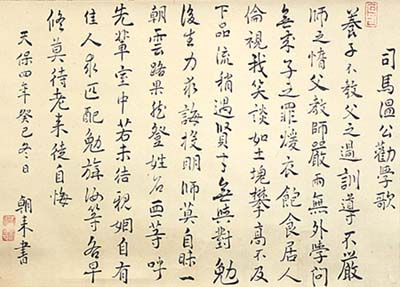 司馬溫公勸學歌
養子不教父之過訓導不嚴
師之惰父教師嚴兩無外學問
無成子之罪煖衣飽食居人
倫視我笑談如土塊攀高不及
下品流稍遇賢才無與對勉
後生力求誨投明師莫自昧一
朝雲路果然登姓名亞等呼
先輩室中若未結親姻自有
佳人求匹配勉旃汝等各早
脩莫待老来徒自悔
天保四年癸巳冬日 書